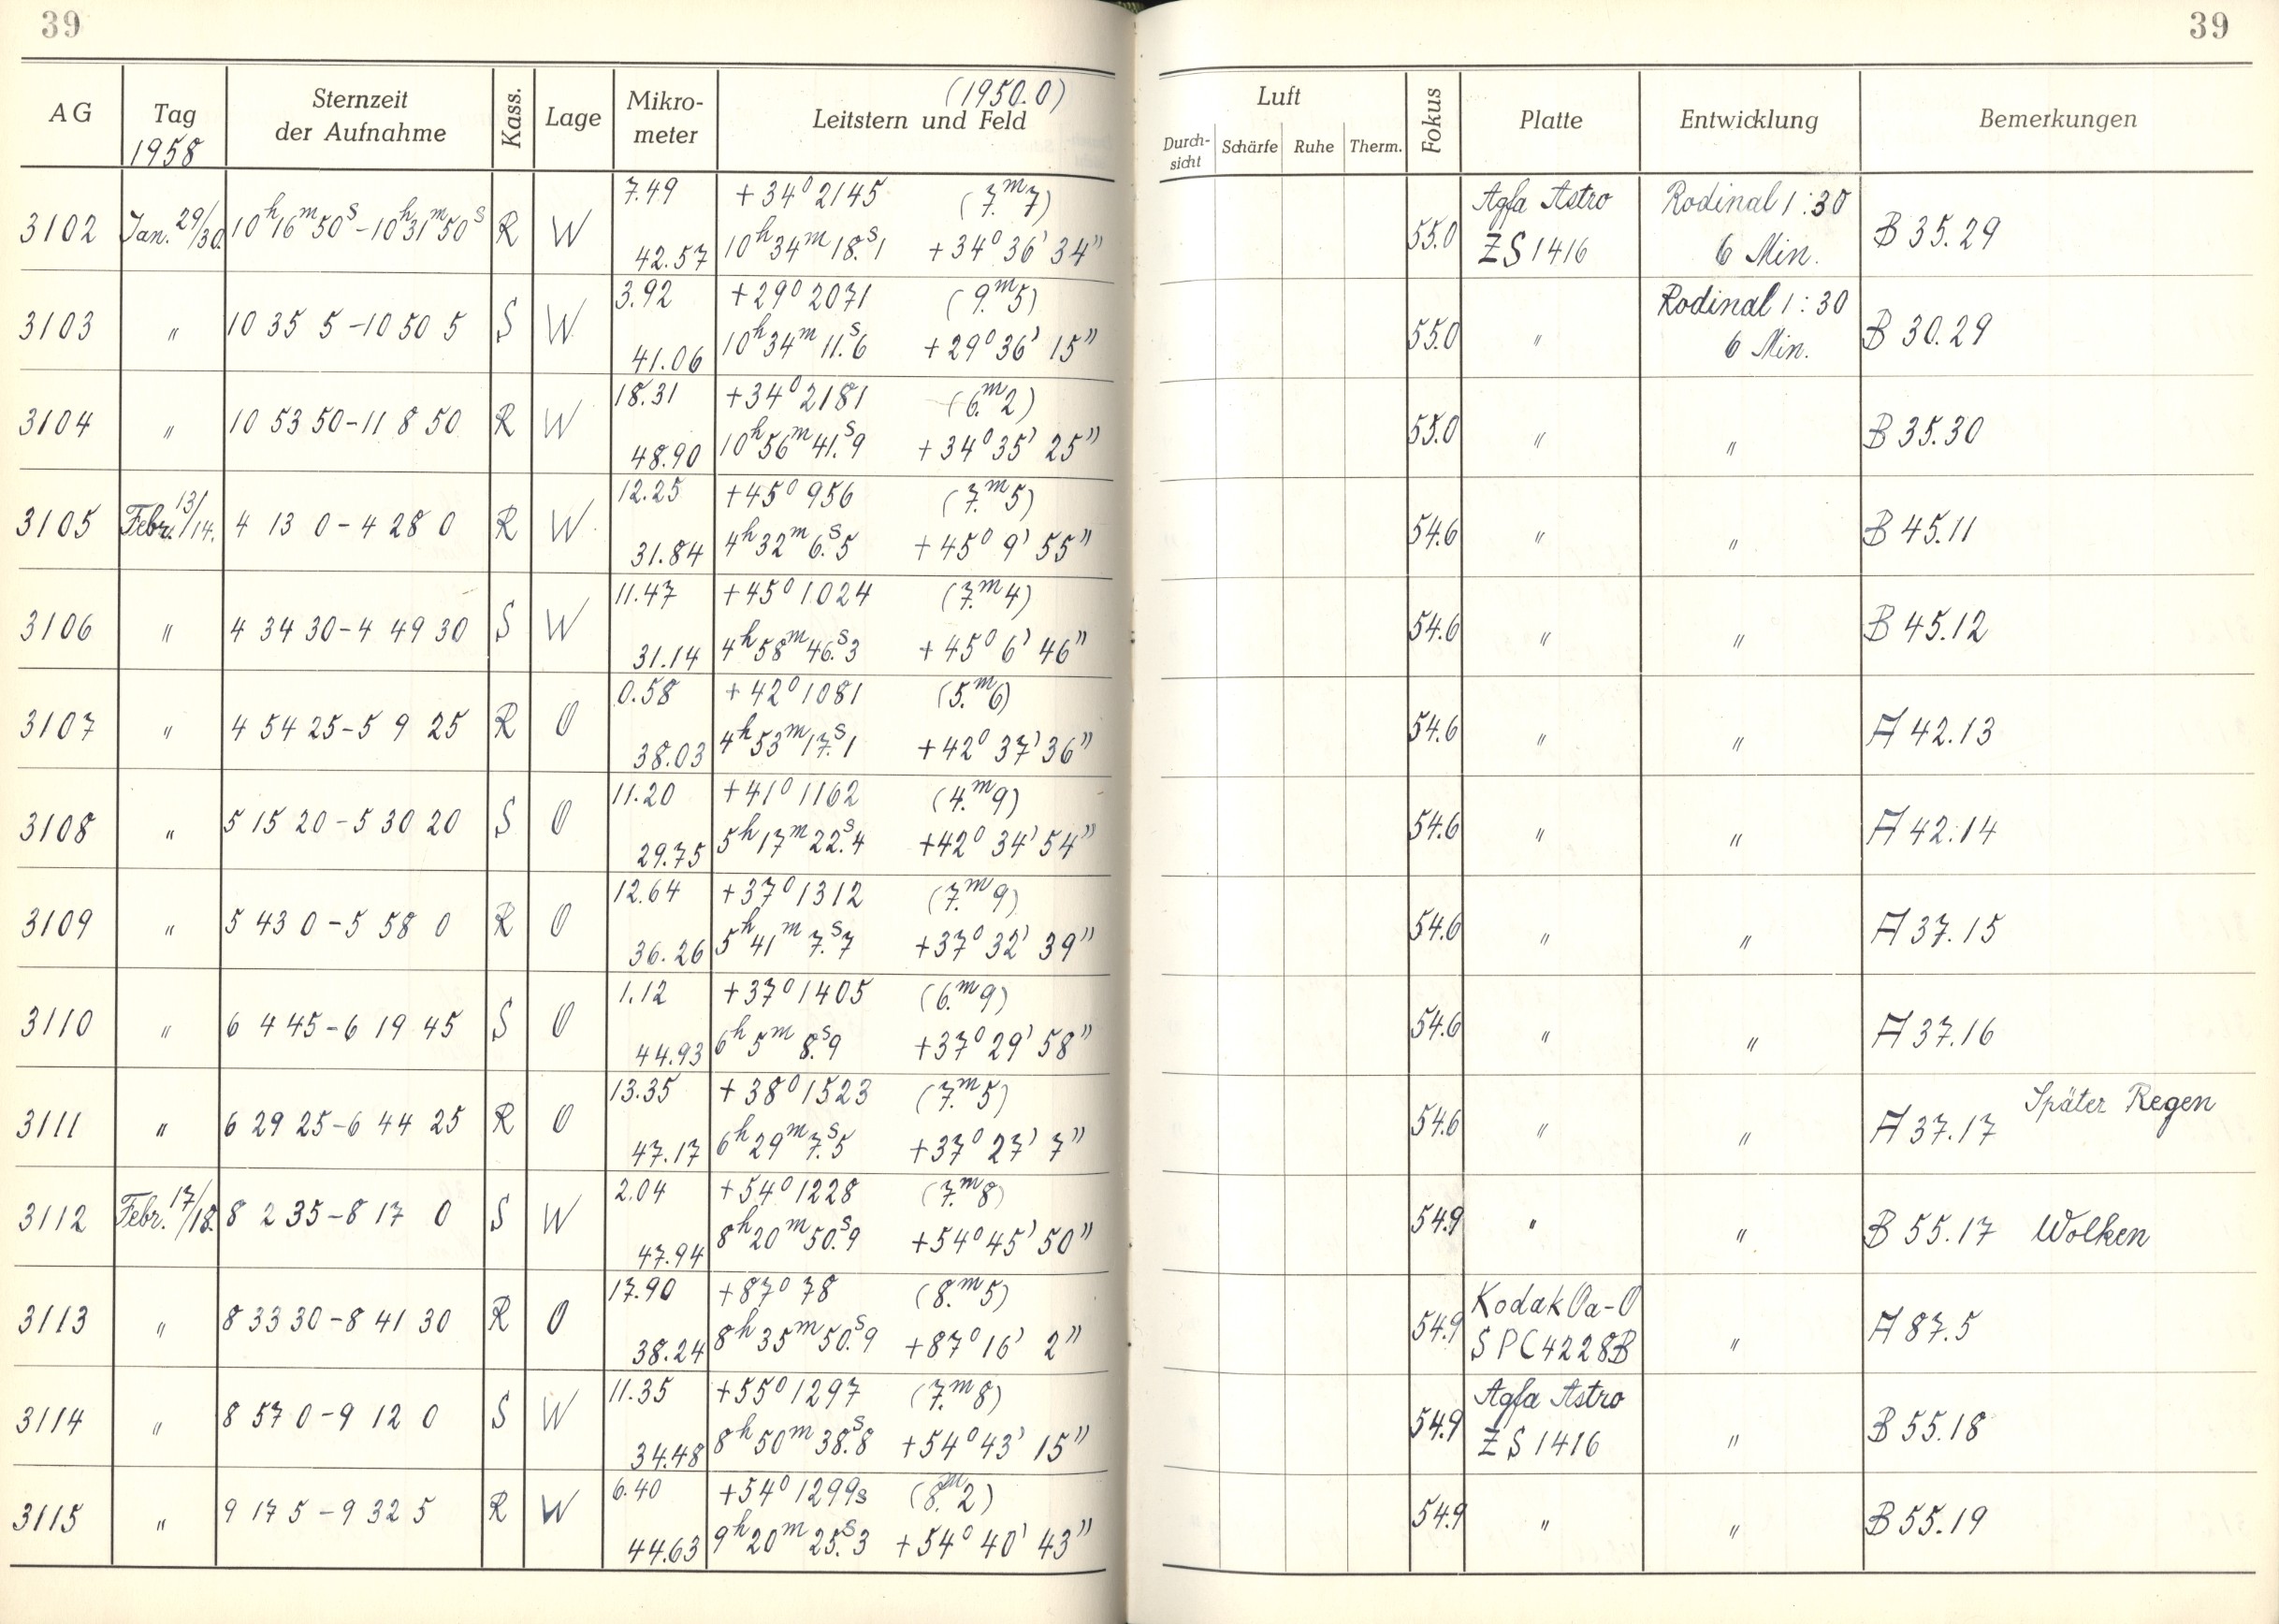 39
39
AG Tag Sternzeit der Aufnahme Kass. Lage Mikro-meter Leitstern und Feld (1950.0) Luft Durch-sicht Schärfe Ruhe Therm. Fokus Platte Entwicklung Bemerkungen
1958
7.49 +34° 2145 (7.m7) Agfa Astro Rodinal 1:30
3102 Jan. 29/30. 10h16m50s-10h31m50s R W 42.57 10h34m18.s1 +34° 36' 34" 55.0 ZS1416 6 Min. B 35.29
3.92 +29° 2071 (9.m5) Rodinal 1:30
3103 " 10 35 5-10 50 5 S W 41.06 10h34m11.s6 +29° 36' 15" 55.0 " 6 Min. B 30.29
18.31 +34° 2181 (6.m2)
3104 " 10 53 50-11 8 50 R W 48.90 10h56m41.s9 +34° 35' 25" 55.0 " " B 35.30
12.25 +45° 956 (7.m5)
3105 Febr. 13/14. 4 13 0-4 28 0 R W 31.84 4h32m6.s5 +45° 9' 55" 54.6 " " B 45.11
11.47 +45° 1024 (7.m4)
3106 " 4 34 30-4 49 30 S W 31.14 4h58m46.s3 +45° 6' 46" 54.6 " " B 45.12
0.58 +42° 1081 (5.m6)
3107 " 4 54 25-5 9 25 R O 38.03 4h53m17.s1 +42° 37' 36" 54.6 " " A 42.13
11.20 +41° 1162 (4.m9)
3108 " 5 15 20-5 30 20 S O 29.75 5h17m22.s4 +42° 34' 54" 54.6 " " A 42.14
12.64 +37° 1312 (7.m9)
3109 " 5 43 0-5 58 0 R O 36.26 5h41m7.s7 +37° 32' 39" 54.6 " " A 37.15
1.12 +37° 1405 (6.m9)
3110 " 6 4 45-6 19 45 S O 44.93 6h5m8.s9 +37° 29' 58" 54.6 " " A 37.16
13.35 +38° 1523 (7.m5) Später Regen
3111 " 6 29 25-6 44 25 R O 47.17 6h29m7.s5 +37° 27' 7" 54.6 " " A 37.17
2.04 +54° 1228 (7.m8)
3112 Febr. 17/18. 8 2 35-8 17 0 S W 47.94 8h20m50.s9 +54° 45' 50" 54.9 " " B 55.17 Wolken
17.90 +87° 78 (8.m5) Kodak Oa-O
3113 " 8 33 30-8 41 30 R O 38.24 8h35m50.s9 +87° 16' 2" 54.9 SPC4228B " A 87.5
11.35 +55° 1297 (7.m8) Agfa Astro
3114 " 8 57 0-9 12 0 S W 34.48 8h50m38.s8 +54° 43' 15" 54.9 ZS1416 " B 55.18
6.40 +54° 1299s (8.m2)
3115 " 9 17 5-9 32 5 R W 44.63 9h20m25.s3 +54° 40' 43" 54.9 " " B 55.19